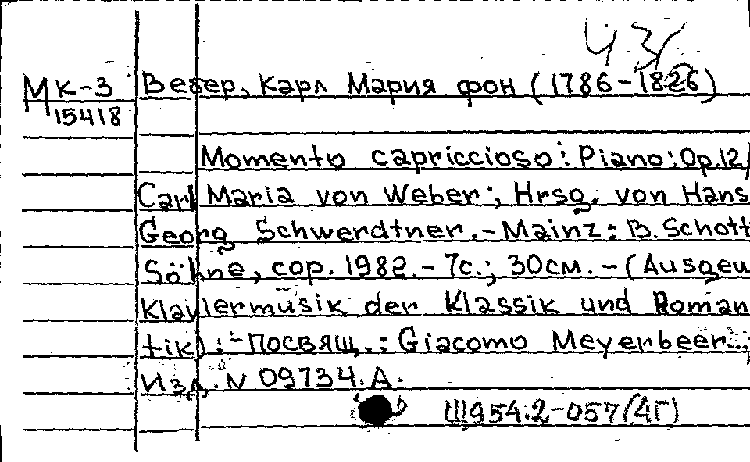 43
МК-3 Вебер, Карл Мария фон (1786-1826)
15418
Momento capriccioso: Piano; Op.12/
Carl Maria von Weber; Hrsg. von Hans
Georg Schwerdtner.-Mainz: B.Schott
Söhne, cop. 1982.-7с.; 30см.-(Ausgew
Klaviermusik der Klassik und Roman
tik).-Посвящ.: Giacomo Meyerbeer...
Изд. N 09734.А.
Ш954.2-057(4Г)